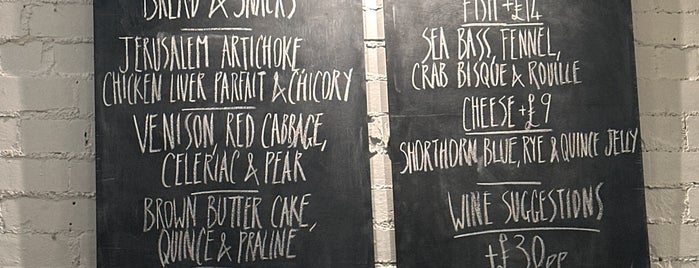 BREAD & SNACKS
JERUSALEM ARTICHOKE
CHICKEN LIVER PARFAIT & CHICORY
VENISON, RED CABBAGE,
CELERIAC & PEAR
BROWN BUTTER CAKE,
QUINCE & PRALINE
FISH +£14
SEA BASS, FENNEL,
CRAB BISQUE & ROUILLE
CHEESE +£9
SHORTHORN BLUE, RYE & QUINCE JELLY
WINE SUGGESTIONS
+£30PP